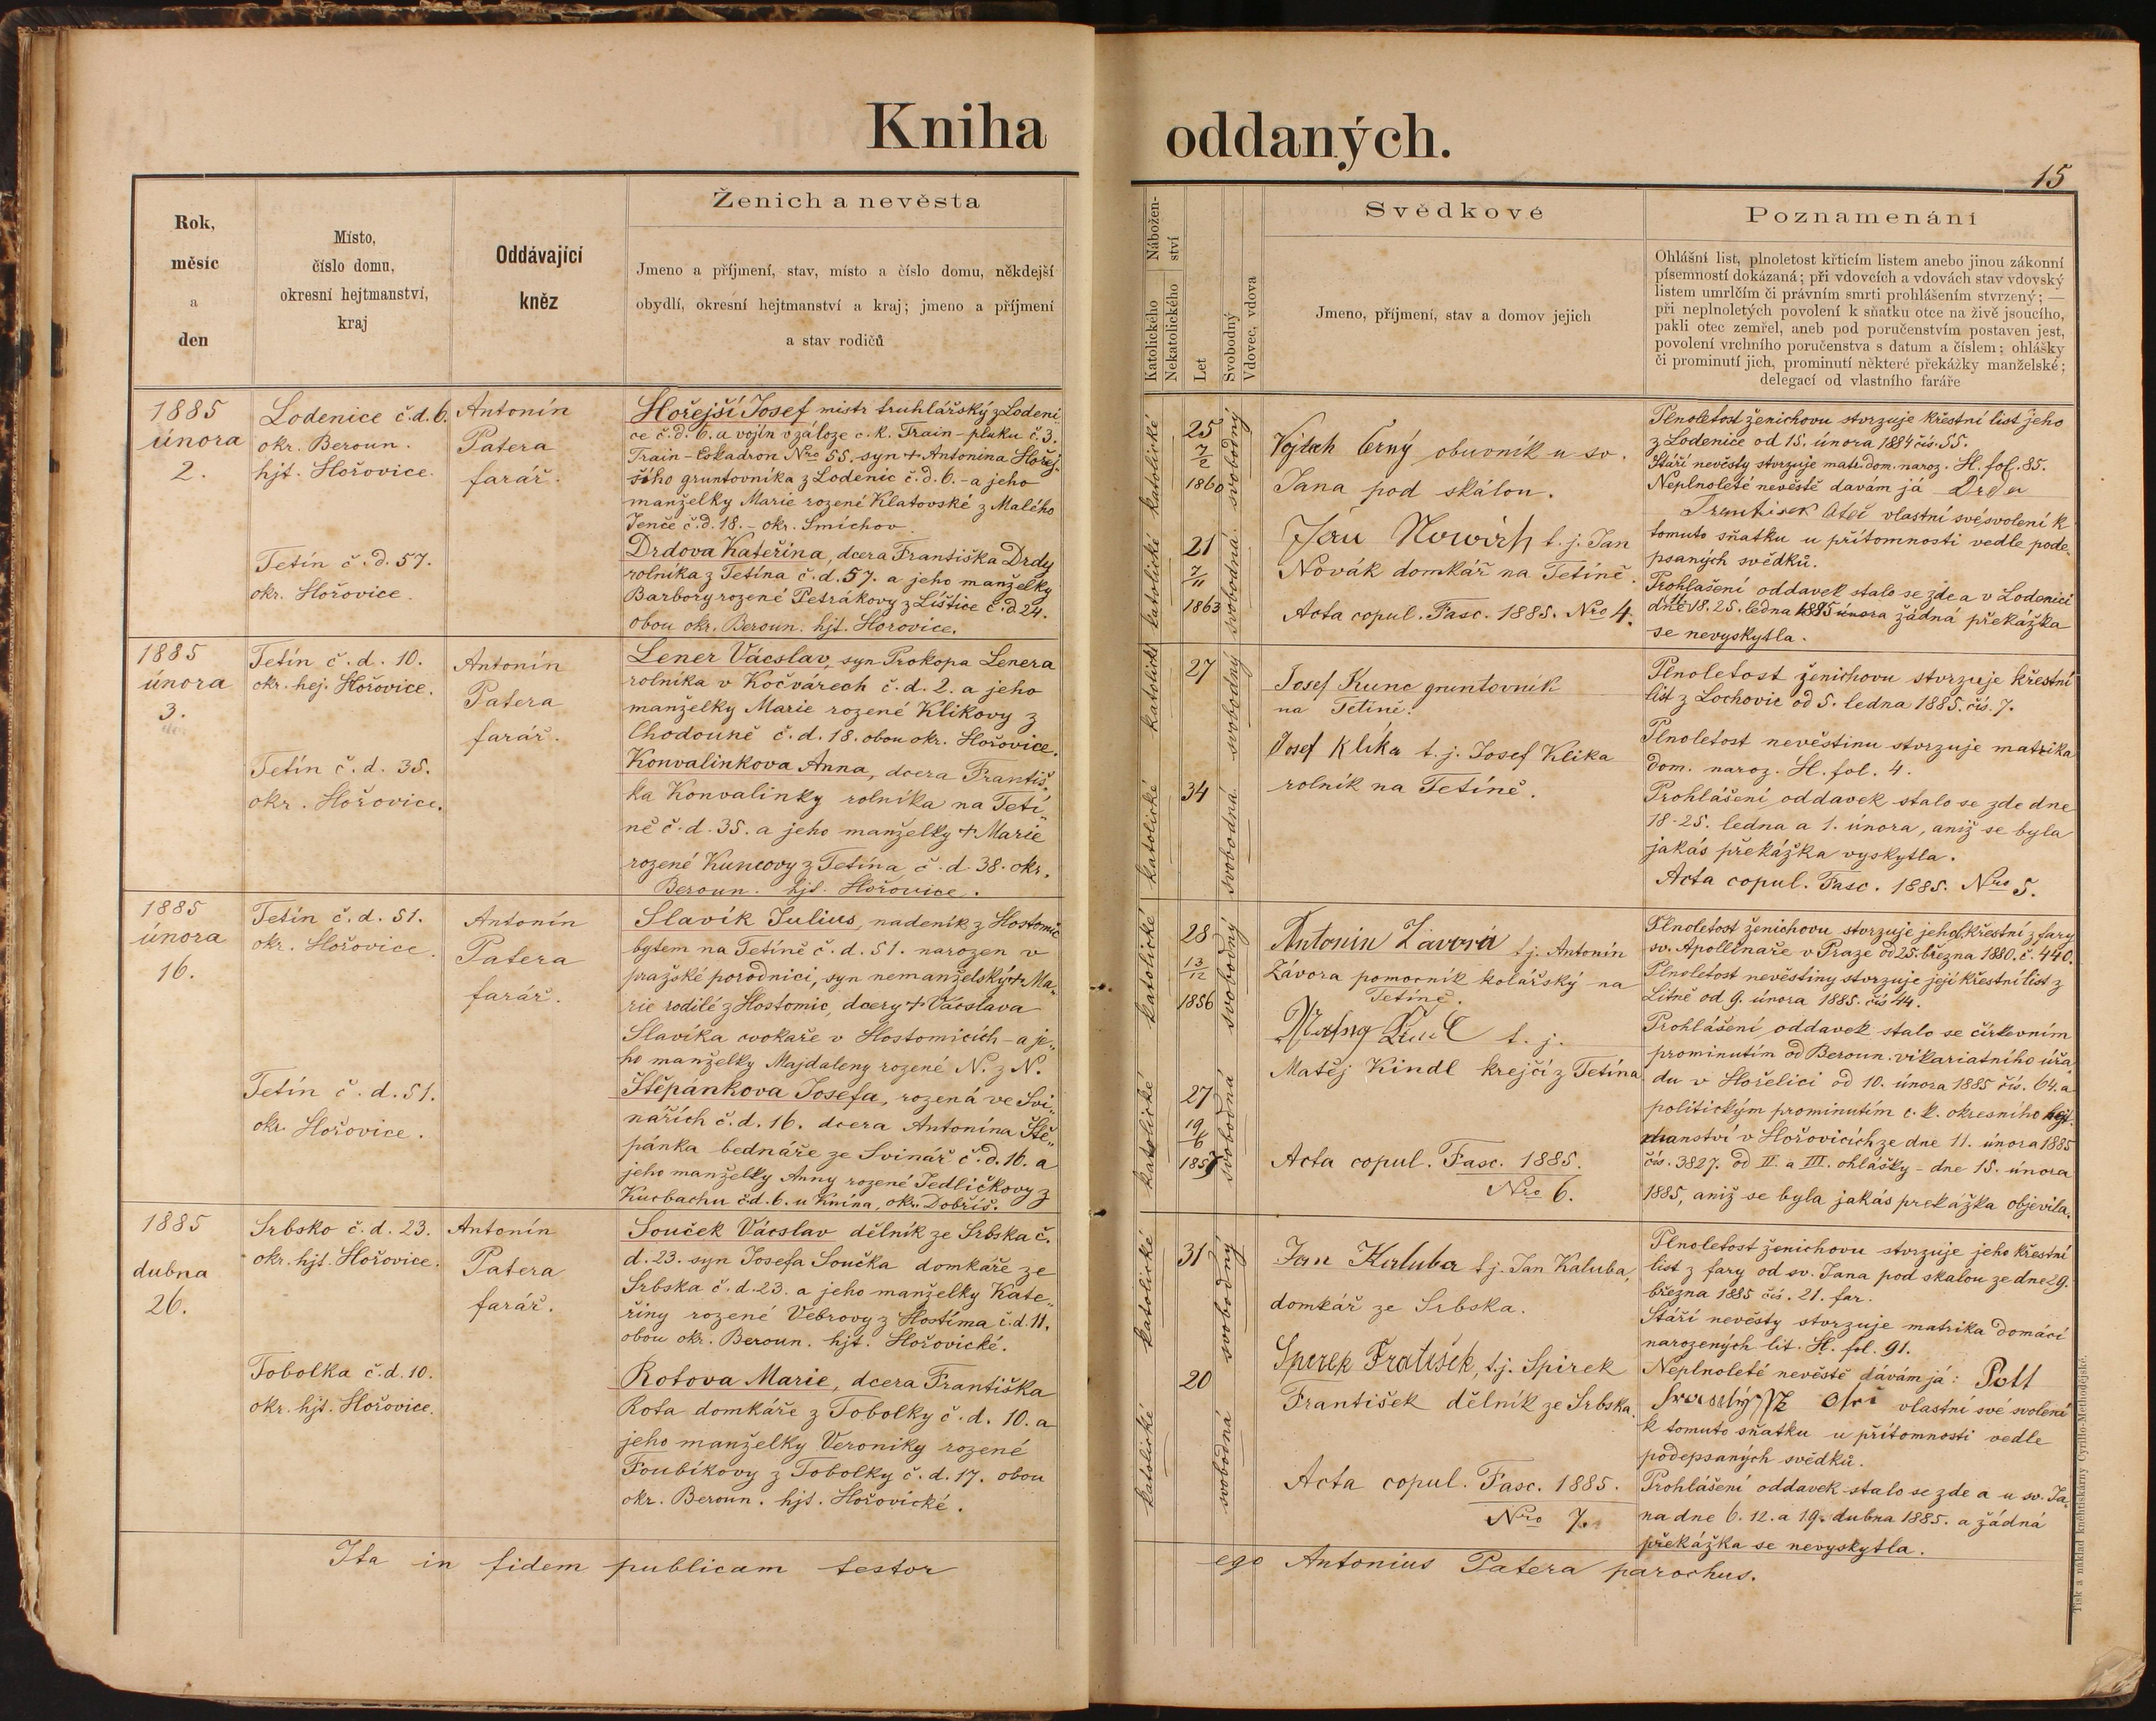 Kniha oddaných.
15
Rok,
měsíc
a
den
Místo,
číslo domu,
okresní hejtmanství,
kraj
Oddávající
kněz
Ženich a nevěsta
Jmeno a příjmení, stav, místo a číslo domu, někdejší
obydlí, okresní hejtmanství a kraj; jmeno a příjmení
a stav rodičů
Nábožen-
ství
Katolického
Nekatolického
Let
Svobodný
Vdovec, vdova
Svědkové
Jmeno, příjmení, stav a domov jejich
Poznamenání
Ohlášní list, plnoletost křticím listem anebo jinou zákonní
písemností dokázaná; při vdovcích a vdovách stav vdovský
listem umrlčím či právním smrti prohlášením stvrzený; —
při neplnoletých povolení k sňatku otce na živě jsoucího,
pakli otec zemřel, aneb pod poručenstvím postaven jest,
povolení vrchního poručenstva s datum a číslem; ohlášky
či prominutí jich, prominutí některé překážky manželské;
delegací od vlastního faráře
1885
února
2.
Lodenice č.d. 6.
okr. Beroun.
hjt. Hořovice.
Tetín č. d. 57.
okr. Hořovice.
Antonín
Patera
farář.
Hořejší Josef mistr truhlářský z Lodeni
ce č. d. 6. a vojín v záloze c. k. Train-pluku č. 3.
Train-Eskadron Nro 55. syn + Antonína Hořej-
šího gruntovníka z Lodenic č. d. 6. - a jeho
manželky Marie rozené Klatovské z Malého
Jenče č. d. 18. - okr. Smíchov.
Drdova Kateřina, dcera Františka Drdy
rolníka z Tetína č. d. 57. a jeho manželky
Barbory rozené Petrákovy z Lištice č. d 24.
obou okr. Beroun. hjt. Horovice.
katolické
25
7/2
1860
svobodný
katolické
21
7/11
1863
svobodná
Vojtěch Černý obuvník u sv.
Jana pod skálou.
Jan Nowák t. j. Jan
Novák domkář na Tetíně.
Acta copul. Fasc. 1885. Nro 4.
Plnoletost ženichovu stvrzuje křestní list jeho
z Lodenice od 15. února 1884 čis. 55.
Stáří nevěsty stvrzuje matr. dom. naroz. H. fol. 85.
Neplnoleté nevěstě davám já Drda
František Oteč vlastní své svolení k
tomuto sňatku u přítomnosti vedle pode-
psaných svědků.
Prohlašení oddavek stalo se zde a v Lodenici
dně 18. 25. ledna 1885 února žádná překážka
se nevyskytla.
1885
února
3.
Tetín č. d. 10.
okr. hej. Hořovice.
Tetín č. d. 35.
okr. Hořovice.
Antonín
Patera
farář.
Lener Václav, syn Prokopa Lenera
rolníka v Kočvárech č. d. 2. a jeho
manželky Marie rozené Klikovy z
Chodouně č. d. 18. obou okr. Hořovice.
Konvalinkova Anna, dcera Františ-
ka Konvalinky rolníka na Tetí-
ně č. d. 35. a jeho manželky + Marie
rozené Kuncovy z Tetína č. d. 38. okr.
Beroun. hjt. Hořovice.
katolické
27
svobodný
katolické
34
svobodná
Josef Kunc gruntovník
na Tetíně.
Josef Klíka t. j. Josef Klika
rolník na Tetíně.
Plnoletost ženichovu stvrzuje křestní
list z Lochovic od 5. ledna 1885. čis. 7.
Plnoletost nevěstinu stvrzuje matrika
dom. naroz. H. fol. 4.
Prohlášení oddavek stalo se zde dne
18-25. ledna a 1. února, aniž se byla
jakás překážka vyskytla.
Acta copul. Fasc. 1885. Nro 5.
1885
února
16.
Tetín č. d. 51.
okr. Hořovice.
Tetín č. d. 51.
okr. Hořovice.
Antonín
Patera
farář.
Slavík Julius, nadeník z Hostomic
bytem na Tetíně č. d. 51. narozen v
pražské porodnici, syn nemanželský + Ma-
rie rodilé z Hostomic, dcery + Václava
Slavíka cvokaře v Hostomicích - a je-
ho manželky Majdaleny rozené N. z N.
Štěpánkova Josefa, rozená ve Svi-
nařích č. d. 16. dcera Antonína Ště-
pánka bednáře ze Svinář č. d. 16. a
jeho manželky Anny rozené Jedličkovy z
Kucbachu č.d. 6. u Knína, okr. Dobříš.
katolické
28
13/12
1856
svobodný
katolické
27
19/6
1857
svobodná
Antonín Závora t. j. Antonín
Závora pomocník kolářský na
Tetíně.
t. j.
Matěj Kindl krejčí z Tetína
Acta copul. Fasc. 1885.
Nro 6.
Plnoletost ženichovu stvrzuje jeho křestní z fary
sv. Apollináře v Praze od 25. března 1880. č. 440.
Plnoletost nevěstiny stvrzuje její křestní list z
Litně od 9. února 1885. čis 44.
Prohlášení oddavek stalo se církevním
prominutím od Beroun. vikariatního úřa
du v Hořelici od 10. února 1885 čis. 64. a
politickým prominutím c. k. okresního hejt-
manství v Hořovicích ze dne 11. února 1885
čis. 3827. od II. a III. ohlášky - dne 15. února
1885, aniž se byla jakás prekážka objevila.
1885
dubna
26.
Srbsko č. d. 23.
okr. hjt. Hořovice.
Tobolka č. d. 10.
okr. hjt. Hořovice.
Antonín
Patera
farář.
Souček Václav dělník ze Srbska č.
d. 23. syn Josefa Součka domkáře ze
Srbska č. d. 23. a jeho manželky Kate-
řiny rozené Vébrovy z Hostíma č. d. 11.
obou okr. Beroun. hjt. Hořovické.
Rotova Marie, dcera Františka
Rota domkáře z Tobolky č. d. 10. a
jeho manželky Veroniky rozené
Foubíkovy z Tobolky č. d. 17. obou
okr. Beroun. hjt. Hořovické.
katolické
31
svobodný
katolické
20
svobodná
Jan Kaluba t. j. Jan Kaluba,
domkář ze Srbska.
Spirek Fratišek, t. j. Spirek
František dělník ze Srbska.
Acta copul. Fasc. 1885.
Nro 7.
Plnoletost ženichovu stvrzuje jeho křestní
list z fary od sv. Jana pod skalou ze dne 29.
března 1885 čís. 21. far.
Stáří nevěsty stvrzuje matrika domácí
narozených lit. H. fol. 91.
Neplnoleté nevěstě dávám já:
vlastní své svolení
k tomuto sňatku u přítomnosti vedle
podepsaných svědků.
Prohlášení oddavek stalo se zde a u sv. Ja-
na dne 6. 12. a 19. dubna 1885. a žádná
překážka se nevyskytla.
Ita in fidem publicam testor ego Antonius Patera parochus.
Tisk a náklad knihtiskárny Cyrillo-Methodějské.